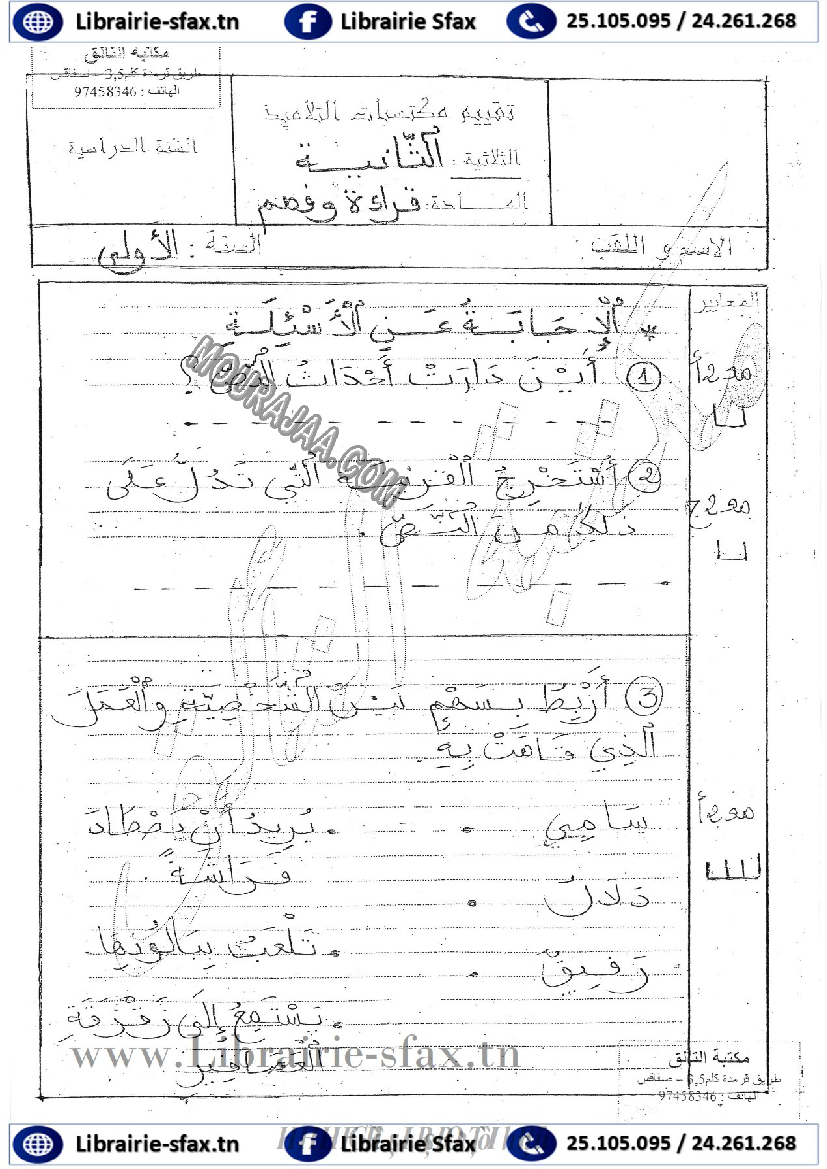 Librairie-sfax.tn Librairie Sfax 25.105.095 / 24.261.268
مكتبة التالق
طريق قرمدة كلم3,5 - صفاقس
الهاتف : 97458346
تقييم مكتسبات التلاميذ
الثلاثية : الثَّانية
المادة : قراءة وفهم
السنة الدراسية
الاسم و اللقب :
السنة : الأولى
المعايير
* اَلْإِجَابَةُ عَنِ الْأَسْئِلَةِ
① أَيْنَ دَارَتْ أَحْدَاثُ النَّصِّ ؟
مع2أ
② أَسْتَخْرِجُ الْقَرِينَةَ الَّتِي تَدُلُّ عَلَى
ذَلِكَ مِنَ النَّصِّ .
مع2ج
③ أَرْبِطُ بِسَهْمٍ بَيْنَ الشَّخْصِيَّةِ وَالْعَمَلِ
الَّذِي قَامَتْ بِهِ .
مع2أ
سَامِي . . يُرِيدُ أَنْ يَصْطَادَ
فَرَاشَةً
دَلَالُ .
. تَلْعَبُ بِبَالُونِهَا
رَفِيقٌ .
. يَسْتَمِعُ إِلَى زَقْزَقَةِ
الْعَصَافِيرِ
www.Librairie-sfax.tn
مكتبة التالق
طريق قرمدة كلم3,5 - صفاقس
الهاتف : 97458346
MOURAJAA.COM
Librairie-sfax.tn Librairie Sfax 25.105.095 / 24.261.268